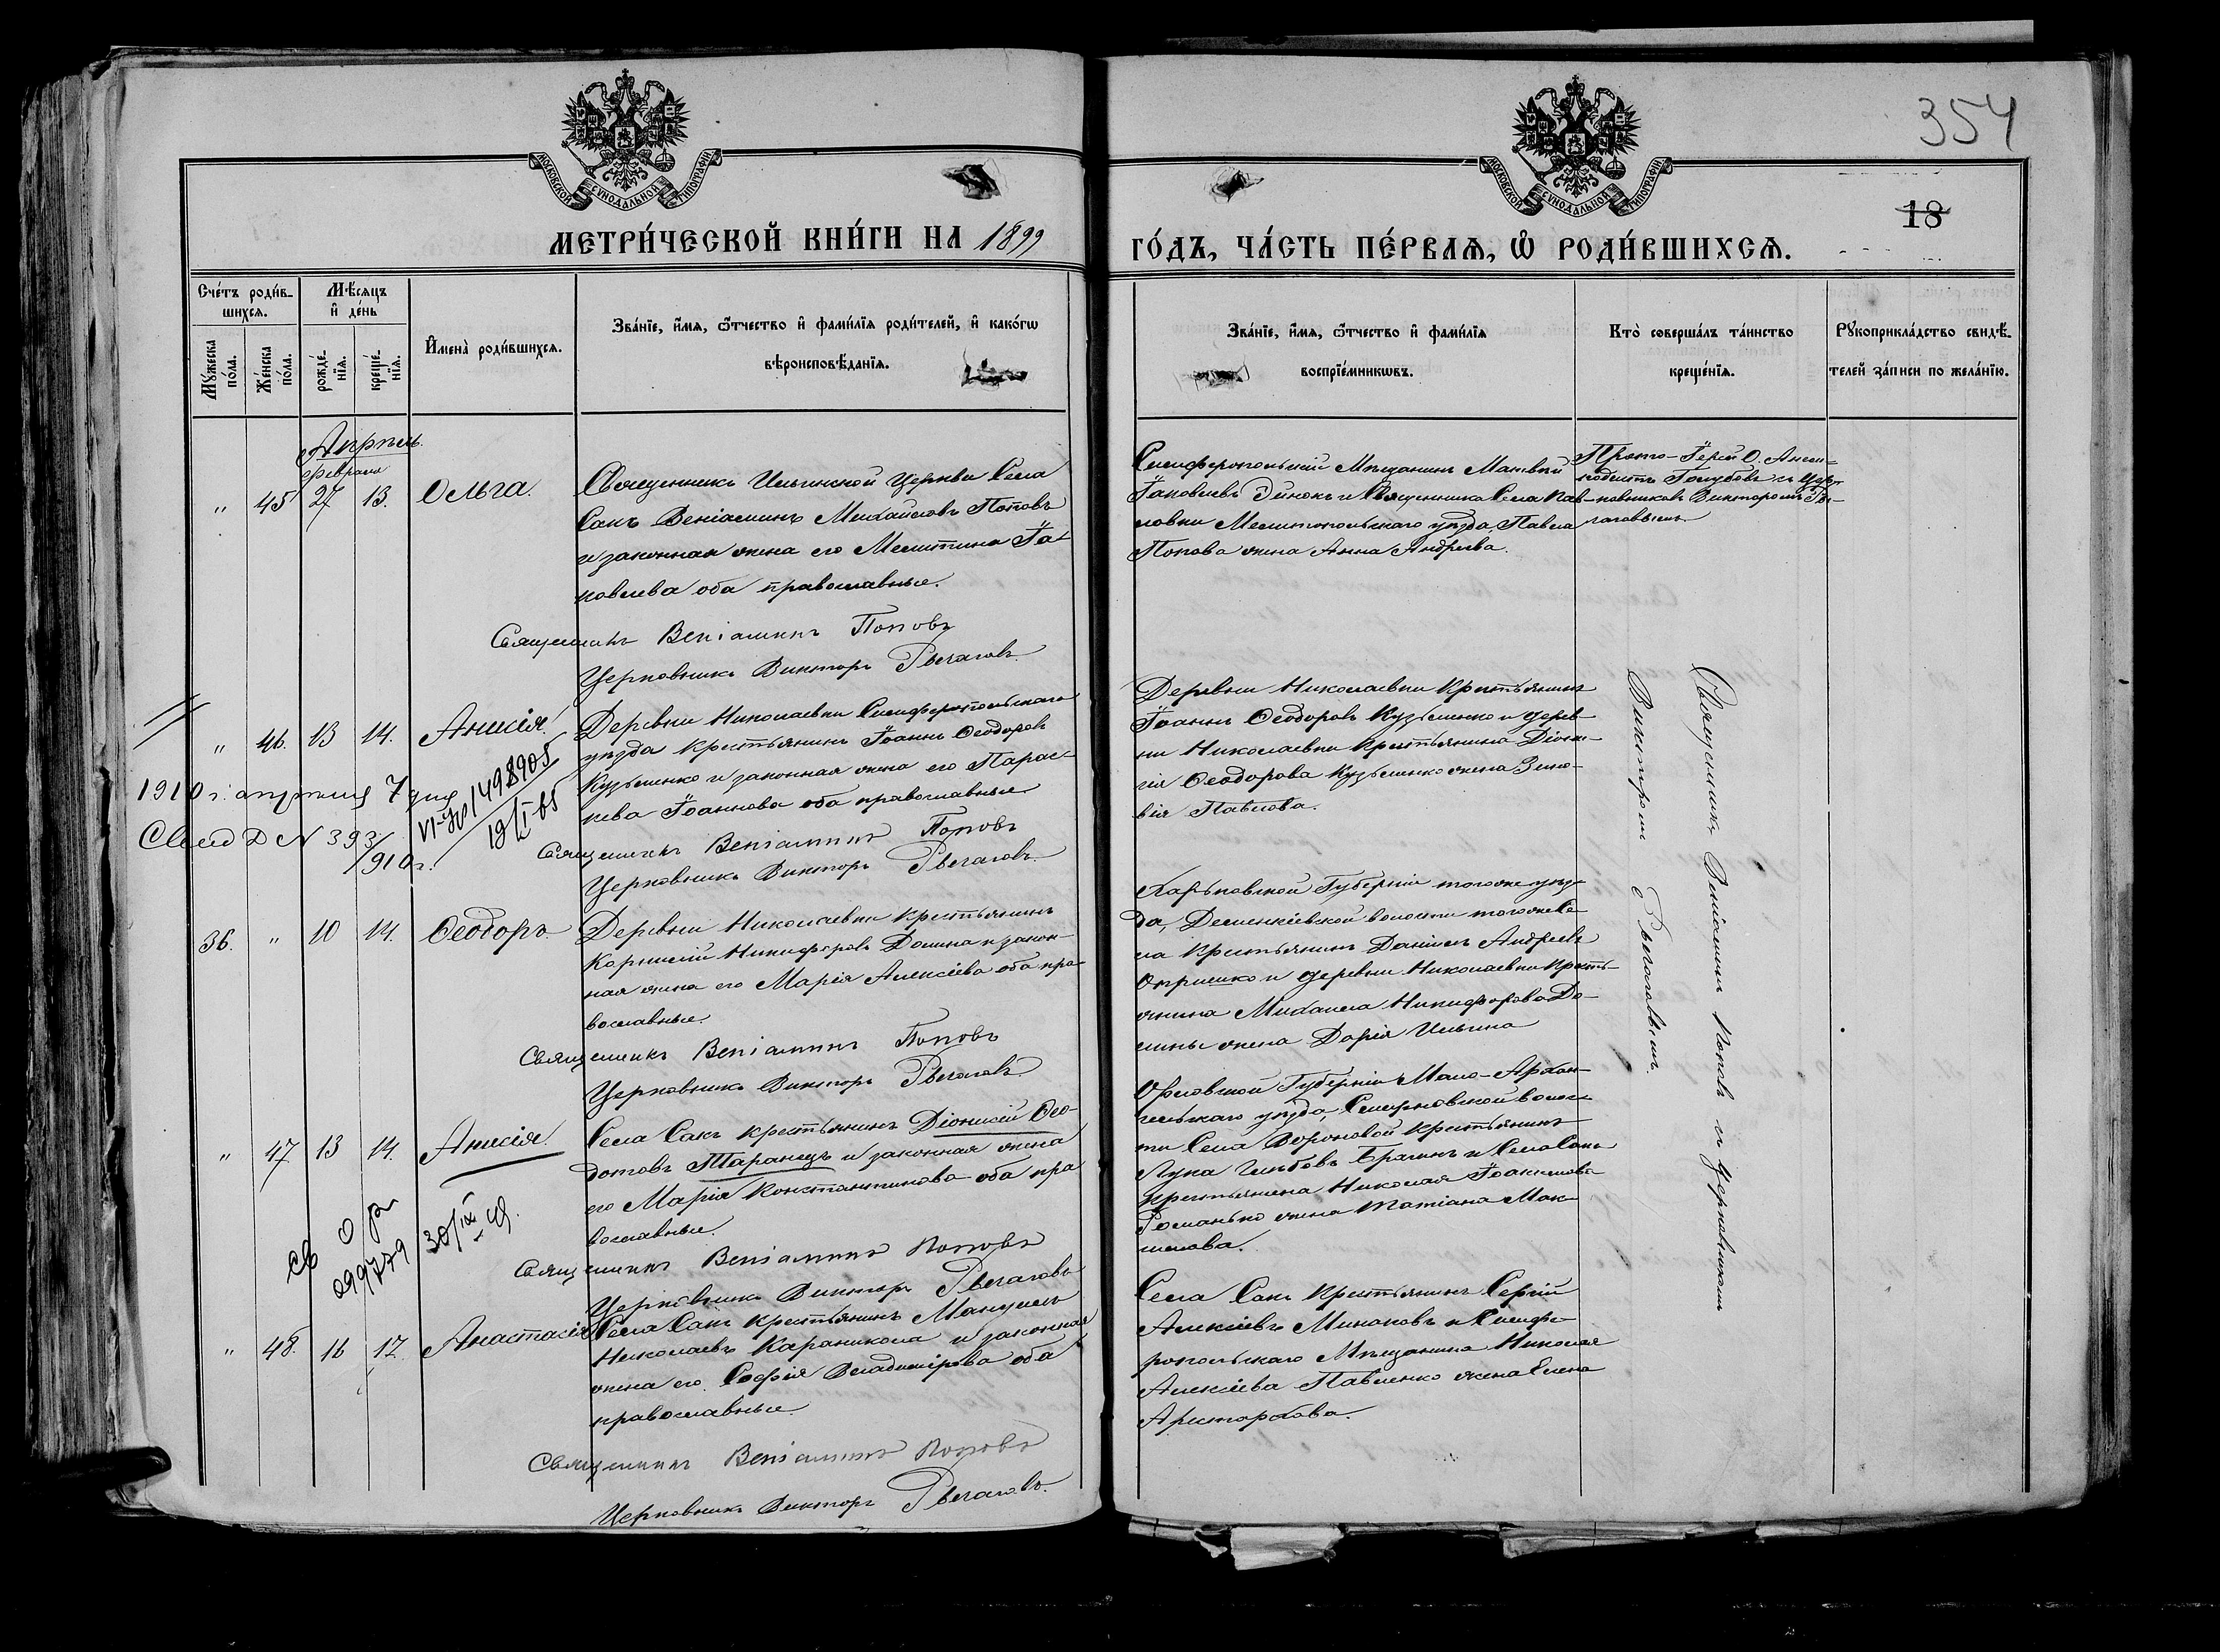 354
18
МОСКОВСКОЙ СУНОДАЛЬНОЙ ТИПОГРАФІИ
МОСКОВСКОЙ СУНОДАЛЬНОЙ ТИПОГРАФІИ
МЕТРИ́ЧЕСКОЙ КНИ́ГИ НА 1899
ГО́ДЪ, ЧА́СТЬ ПЕ́РВАѦ, Ѽ РОДИ́ВШИХСѦ.
Сче́тъ роди́в-
шихсѧ.
Мѣ́сѧцъ
и҆ де́нь
Мꙋ́жеска
по́ла.
Же́нска
по́ла.
рожде́-
нїѧ.
креще́-
нїѧ.
И҆мена̀ роди́вшихсѧ.
Зва́нїе, и҆́мѧ, ѻ҆́тчество и҆ фами́лїѧ роди́телей, и҆ како́гѡ
вѣроисповѣ́данїѧ.
Зва́нїе, и҆́мѧ, ѻ҆́тчество и҆ фами́лїѧ
воспрїе́мникѡвъ.
Кто̀ соверша́лъ та́инство
креще́нїѧ.
Рꙋкоприкла́дство свидѣ́-
телей за́писи по жела́нїю.
Апрѣль.
февраля
" 45 27 13. Ольга.
Священникъ Ильинской Церкви Села
Сакъ Веніаминъ Михаиловъ Поповъ
и законная жена его Мелитина Іа-
ковлева оба православные.
Священникъ Веніаминъ Поповъ
Церковникъ Викторъ Рычаговъ.
Симферопольскій Мѣщанинъ Матвѣй
Іаковлевъ и Священника Села Пав-
ловки Мелитопольскаго уѣзда Павла
Попова жена Анна Андреева.
Прото-Іерей О.
Голубовъ съ Цер-
ковникомъ Викторомъ Ры-
чаговымъ.
" 46. 13 14. Анисія.
Деревни Николаевки Симферопольскаго
уѣзда крестьянинъ Іоаннъ Ѳеодоровъ
Кузьменко и законная жена его Парас-
кева Іоаннова оба православные
Священникъ Веніаминъ Поповъ
Церковникъ Викторъ Рычаговъ.
1910 г. апрѣля 7 дня
N 393
/910 г.
1498905
19/I-65
Деревни Николаевки крестьянинъ
Іоаннъ Ѳеодоровъ Кузьменко и дерев-
ни Николаевки крестьянина
Ѳеодорова Кузьменко жена Зино-
вія Павлова.
Священникъ Веніаминъ Поповъ и Церковникомъ
Викторомъ Рычаговымъ.
36. " 10 14. Ѳеодоръ.
Деревни Николаевки крестьянинъ
Корнилій Никифоровъ Долина и закон-
ная жена его Марія Алексіева оба пра-
вославные.
Священникъ Веніаминъ Поповъ
Церковникъ Викторъ Рычаговъ
Харьковской Губерніи того же уѣз-
да, волости того же Се-
ла крестьянинъ Даніилъ Андреевъ
и деревни Николаевки кресть-
янина Михаила Никифорова До-
лины жена Дарія Ильина
" 47 13 14. Анисія.
Села Сакъ крестьянинъ Діонисій Ѳео-
дотовъ Таранецъ и законная жена
его Марія Константинова оба пра
вославные.
Священникъ Веніаминъ Поповъ
Церковникъ Викторъ Рычаговъ
099779
Орловской Губерніи Мало-Архан-
гельскаго уѣзда, волос-
ти Села Вороновой крестьянинъ
Лука Глѣбовъ и Села Сакъ
крестьянина Николая Іоакимова
Романько жена Татіана Мак-
симова.
" 48. 16 17. Анастасія
Села Сакъ крестьянинъ Мануилъ
Николаевъ Караникола и законная
жена его Софія Владимірова оба
православные.
Священникъ Веніаминъ Поповъ
Церковникъ Викторъ Рычаговъ.
Села Сакъ крестьянинъ Сергій
Алексіевъ Минаковъ и Симфе-
ропольскаго Мѣщанина Николая
Алексіева Павленко жена Елена
Аристархова.